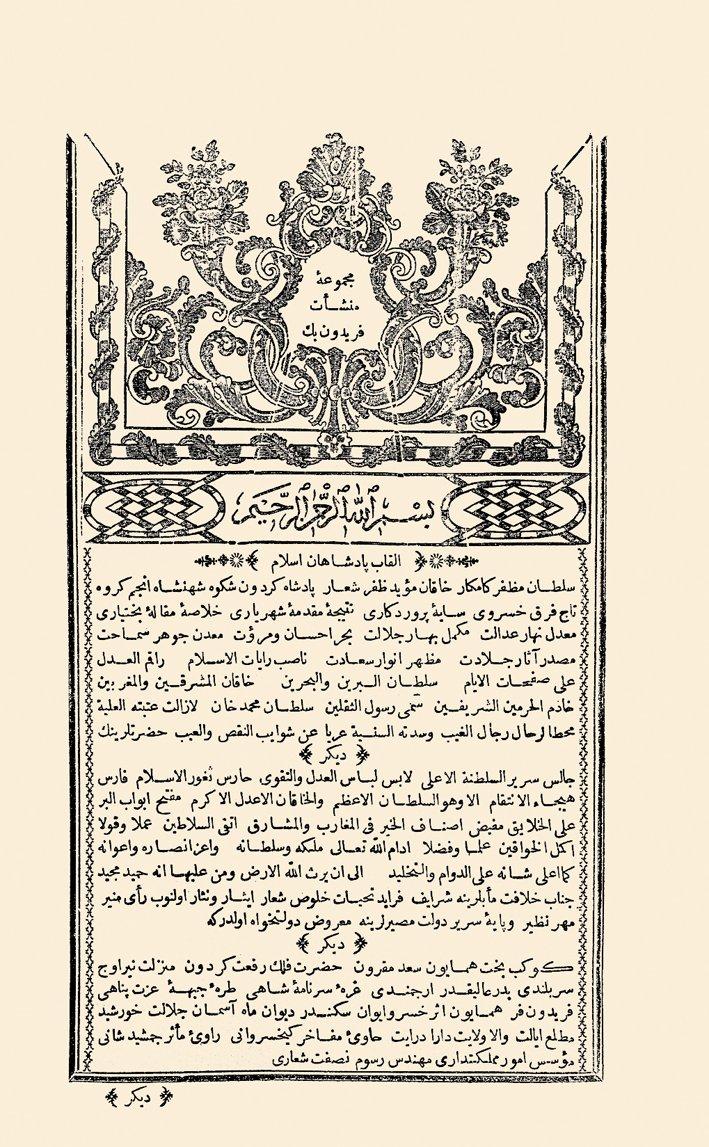 مجموعهٔ
منشـأت
فريدون بك
بسم الله الرحمن الرحيم
القاب پادشاهان اسلام
سلطـان مظفر كامكار خاقان مؤيد ظفر شعار پادشاه كردون شكوه شهنشاه انجم كروه
تاج فرق خسروى سـايهٔ پروردكارى نتيجهٔ مقدمهٔ شهريارى خلاصهٔ مقالهٔ بختيارى
معدل نهار عدالت مكمل بهار جلالت بحر احسان ومروّت معدن جوهر سماحت
مصدر آثار جلادت مظهر انوار سعادت ناصب رايات الاسلام راقم العدل
على صفحات الايام سلطان البرين والبحرين خاقان المشرقين والمغربين
خادم الحرمين الشريفين سمى رسول الثقلين سلطان محمد خان لازالت عتبته العلية
محطا لرحال رجال الغيب وسدته السنية عريا عن شوايب النقص والعيب حضرتلرينك
ديكر
جالس سرير السلطنة الاعلى لابس لباس العدل والتقوى حارس ثغور الاسلام فارس
هيجاء الانتقام الا وهو السلطان الاعظم والخاقان الاعدل الاكرم مفتح ابواب البر
على الخلايق مفيض اصناف الخير فى المغارب والمشارق اتقى السلاطين عملا وقولا
اكمل الخواقين علما وفضلا ادام الله تعالى ملكه وسلطانه واعز انصاره واعوانه
كما اعلى شانه على الدوام والتخليد الى ان يرث الله الارض ومن عليها انه حميد مجيد
جناب خلافت مأبلرينه شرايف فرايد تحيات خلوص شعار ايثار ونثار اولنوب رأى منير
مهر نظير وپايهٔ سرير دولت مصيرلرينه معروض دولتخواه اولدركه
ديكر
كوكب بخت همايون سعد مقرون حضرت فلك رفعت كردون منزلت نير اوج
سربلندى بدر عاليقدر ارجمندى غرهٔ سرنامهٔ شاهى طرهٔ جبههٔ عزت پناهى
فريدون فر همايون اثر خسرو ايوان سكندر ديوان ماه آسمان جلالت خورشيد
مطلع ايالت والا ولايت دارا درايت حاوئ مفاخر كيخسروانى راوئ مأثر جمشيد شانى
مؤسس امور مملكتدارى مهندس رسوم نصفت شعارى
ديكر